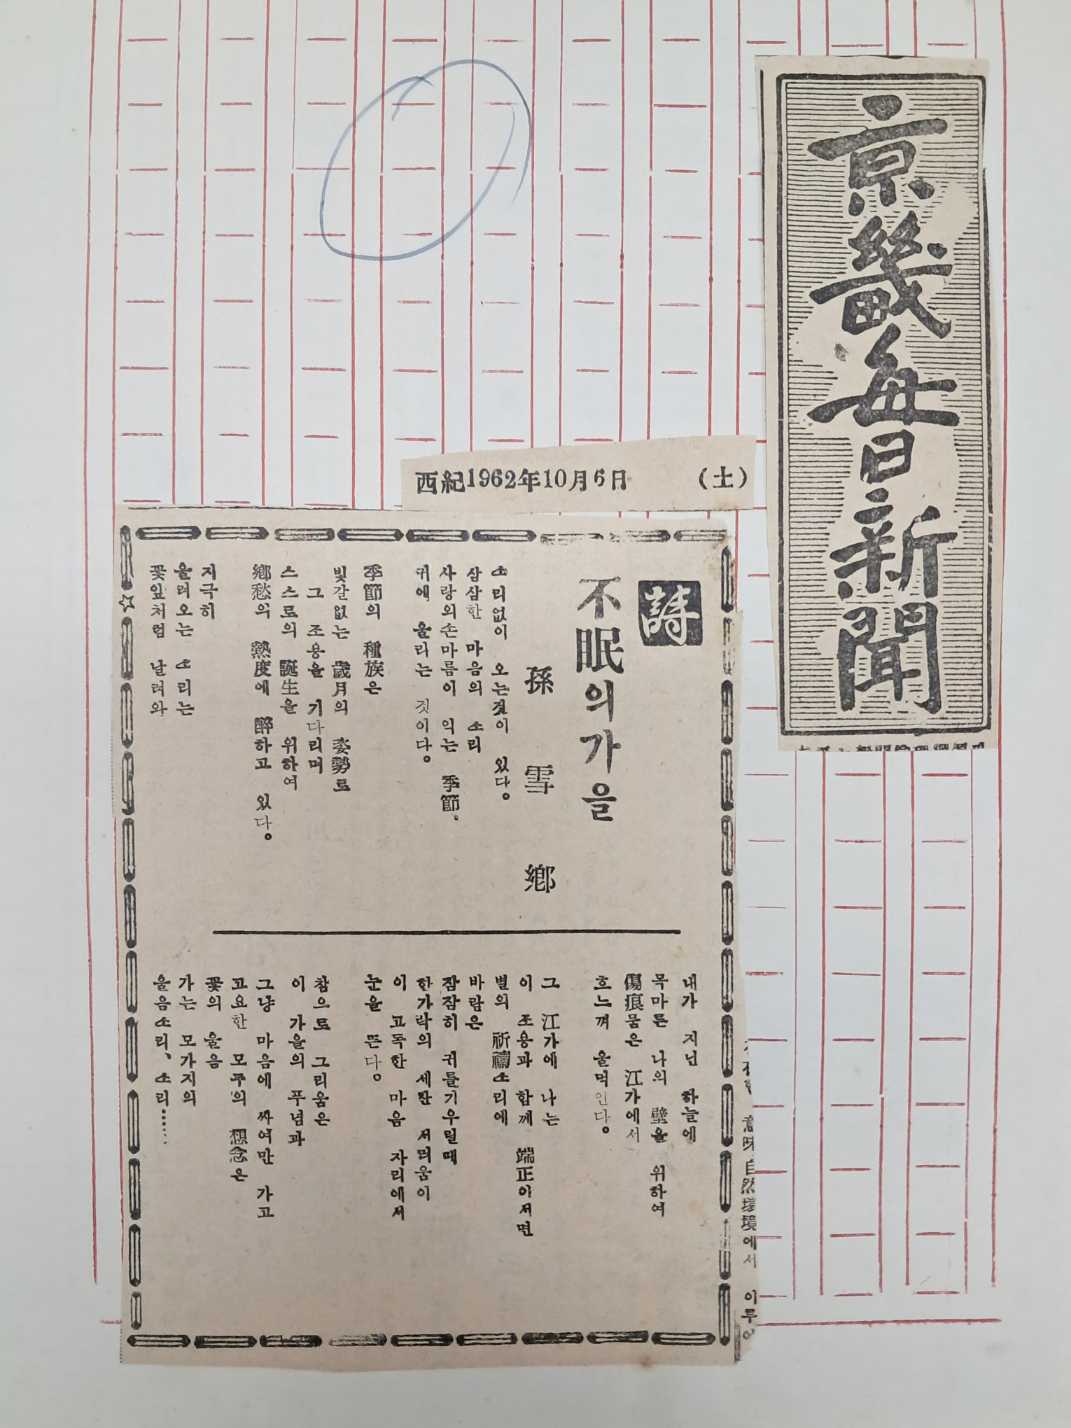 京畿每日新聞
西紀1962年10月6日 (土)
詩
不眠의가을
孫雪鄕
소리없이 오는것이 있다。
삼삼한 마음의 소리
사랑의손마름이 익는 季節、
귀에 울리는 것이다。
季節의 種族은
빛갈없는 歲月의 姿勢로
그 조용을 기다리며
스스로의 誕生을 위하여
鄕愁의 熱度에 醉하고 있다。
지극히
울려오는 소리는
꽃잎처럼 날려와
내가 지닌 하늘에
목마른 나의 壁을 위하여
傷痕묻은 江가에서
흐느껴 울먹인다。
그 江가에 나는
이 조용과 함께 端正이서면
별의 祈禱소리에
바람은
잠잠히 귀를기우릴때
한가락의 세찬 저려움이
이 고독한 마음 자리에서
눈을 뜬다。
참으로 그리움은
이 가을의 푸념과
그냥 마음에 싸여만 가고
고요한 모두의 想念은
꽃의 울음
가는 모가지의
울음소리、소리……
意味 自然環境에서 이루어